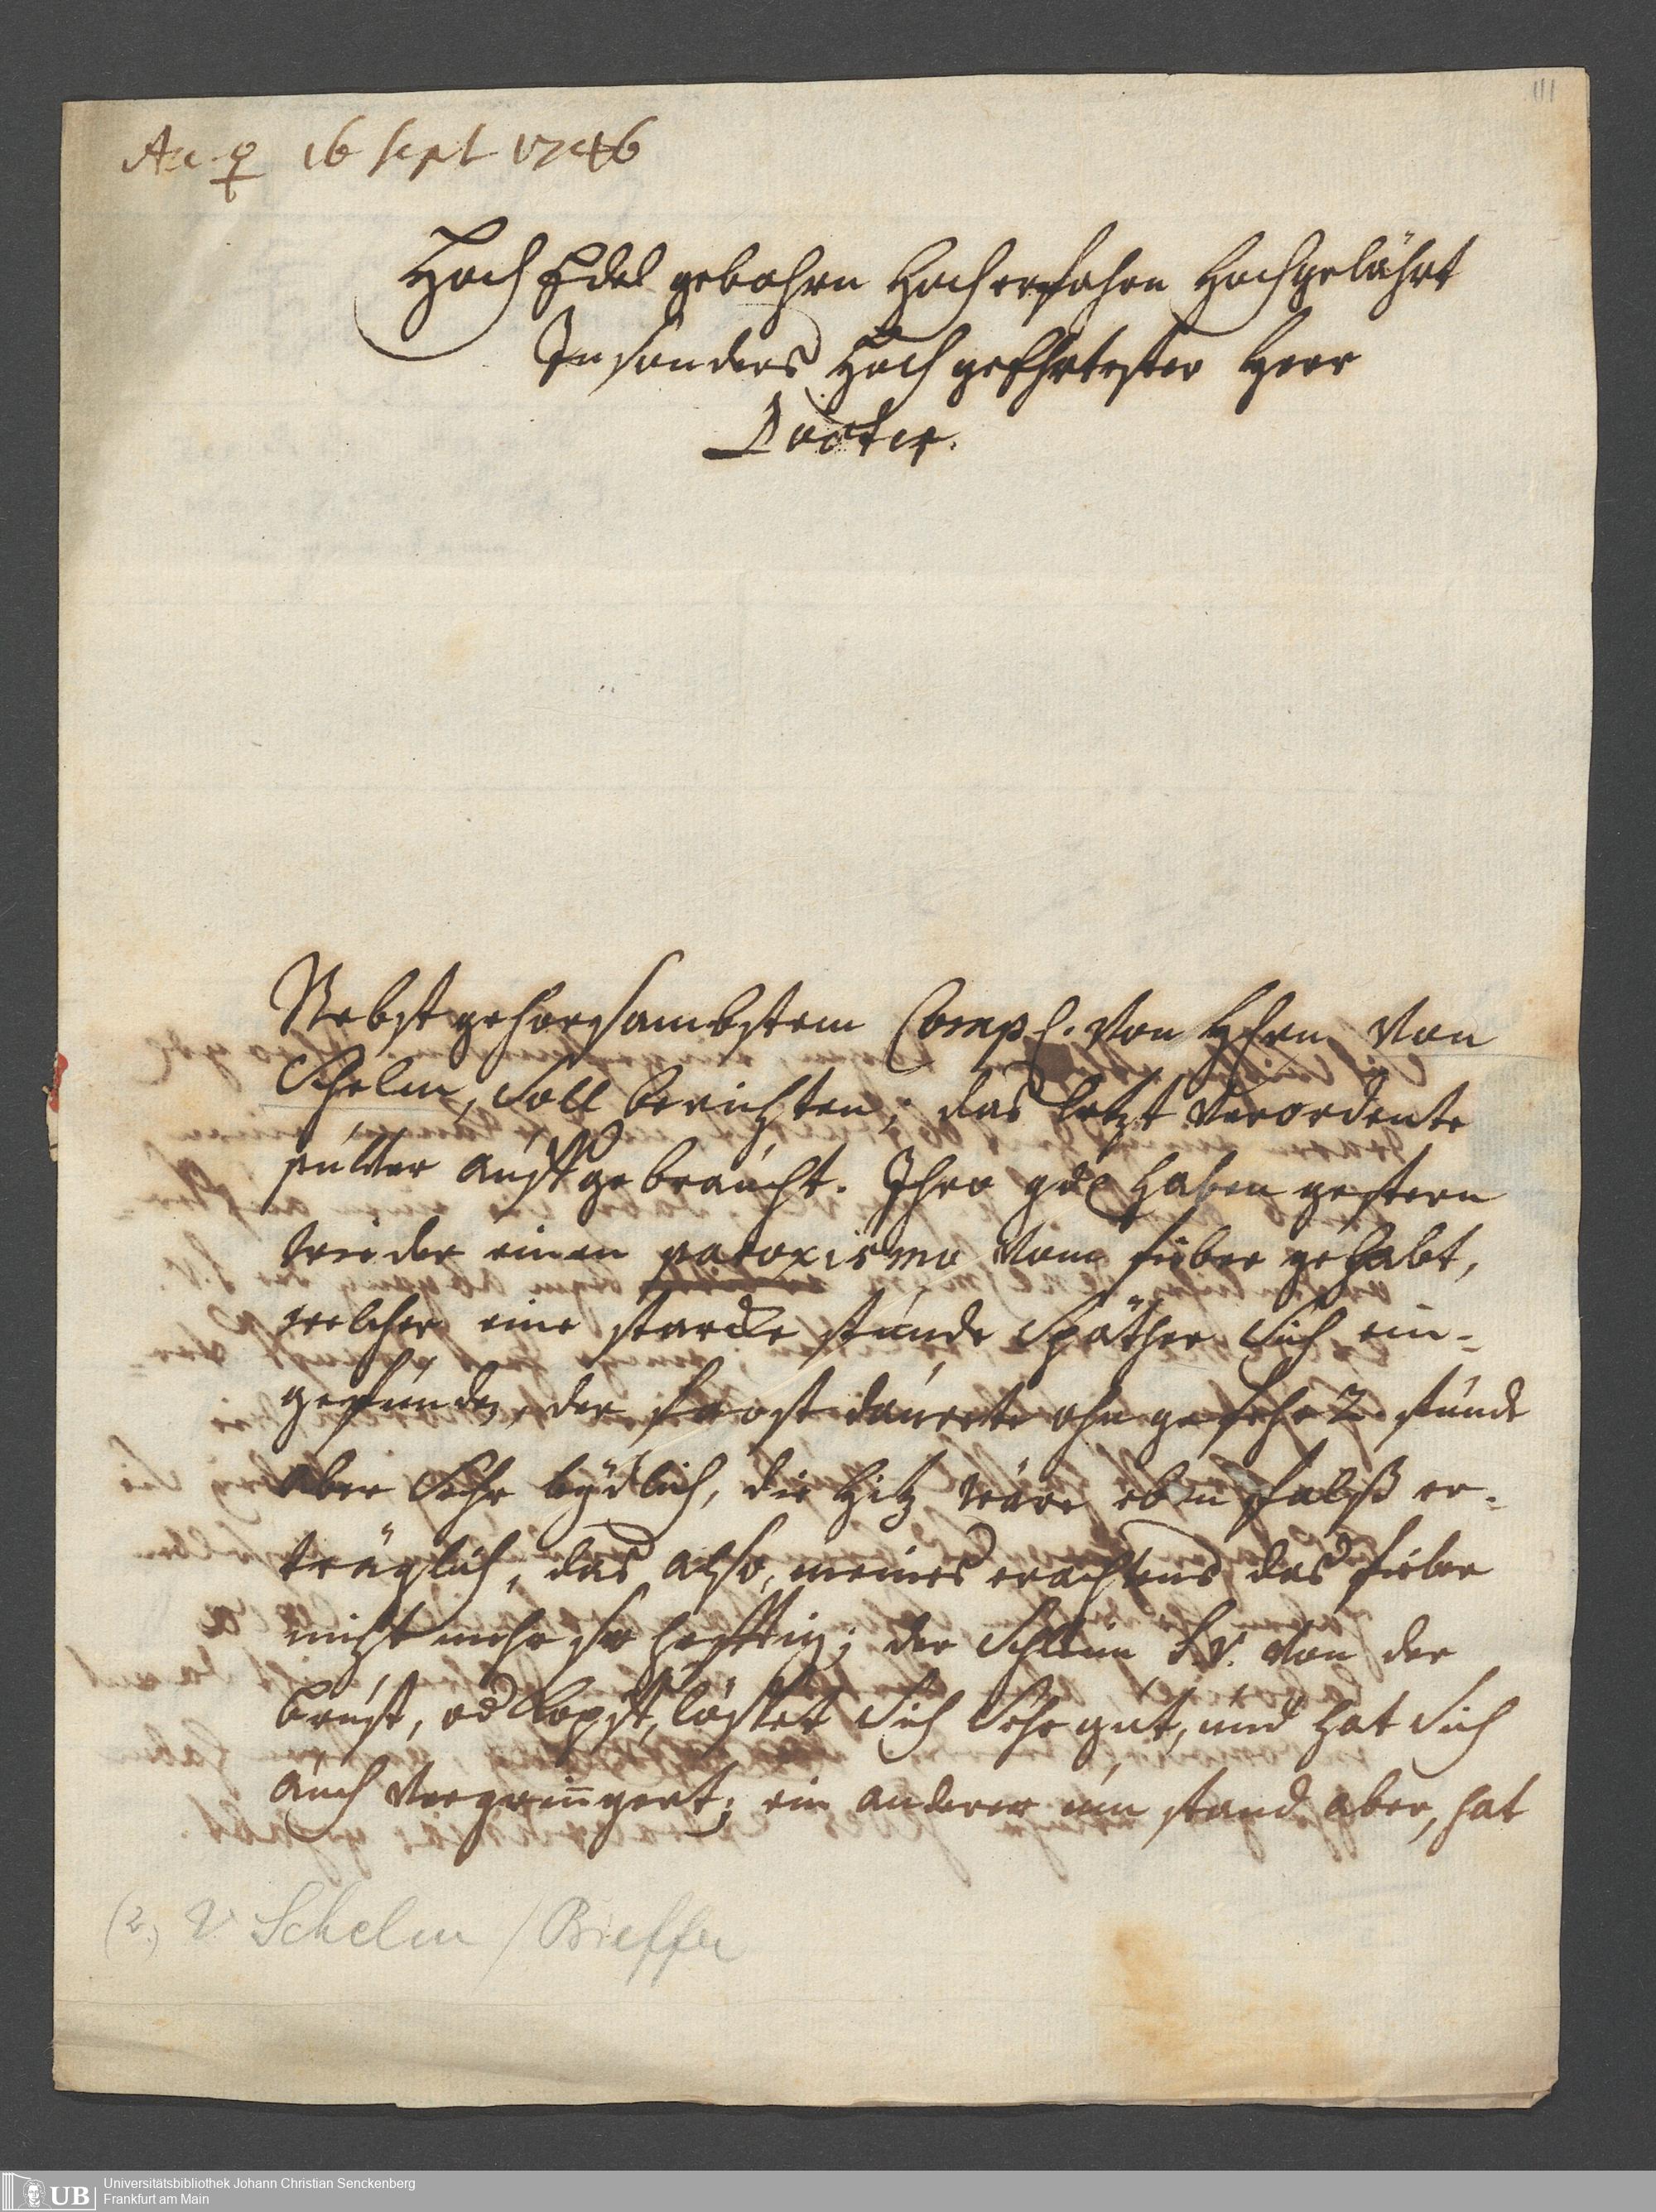 111
Ac. ♀ 16 sept 1746
Hoch Edel gebohrn Hocherfahrn Hochgelährt
Insonders Hoch geEhrtester Herr
Docter.
Nebst gehorsambstem Compl. von Hhrn von
Schelm, soll berichten; das letzt verordente
pulver ausgebraucht. Ihro gdl haben gestern
wieder einen paroxismo vom fieber gehabt,
welcher eine starcke stunde Späther sich ein-
gefunden, der frost dauerte ohn gefehr 2 stundt
aber Sehr leÿdlich, die Hitz ware eben falß er-
träglich, das also, meines erachtens das fieber
nicht mehr so hefftig; der Schleim S.v. von der
brust, od löset sich Sehr gut, und hat sich
auch vergeringert; ein anderer umstand aber, hat
(2.) v. Schelm / Brieffer
UB Universitätsbibliothek Johann Christian Senckenberg
Frankfurt am Main